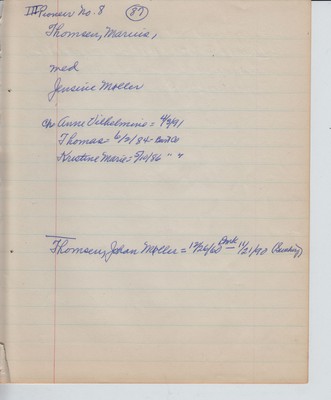 III Pioneer No. 8 (87)
Thomsen, Marius,
med
Jensine Moller
ch Anne Vilhelmine = 4/3/91
Thomas = 6/2/84 -
Kristine Marie = 5/10/86 " "
Thomsen, Johan Moller = 12/26/60 Dmk — 11/21/90